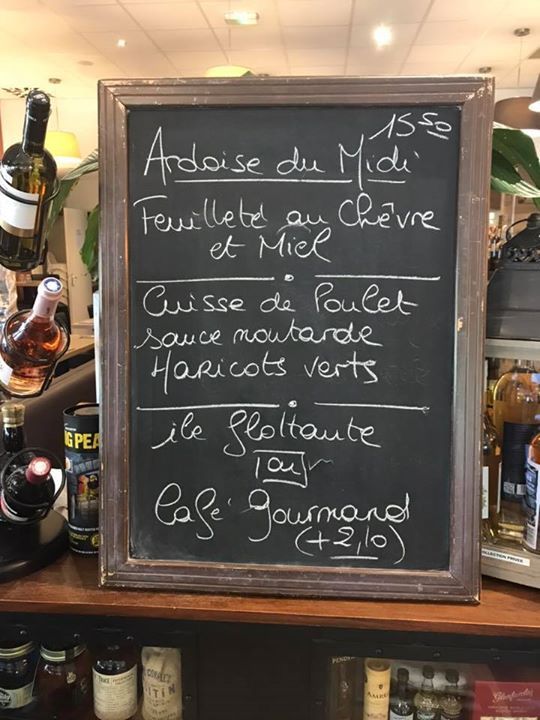 15 50
Ardoise du Midi
Feuilleté au Chêvre
et Miel
Cuisse de Poulet
sauce moutarde
Haricots verts
ile flottante
ou
Café gourmand
(+ 2,10)
G PEA
COLLECTION PRIVEE
Glenfarclas